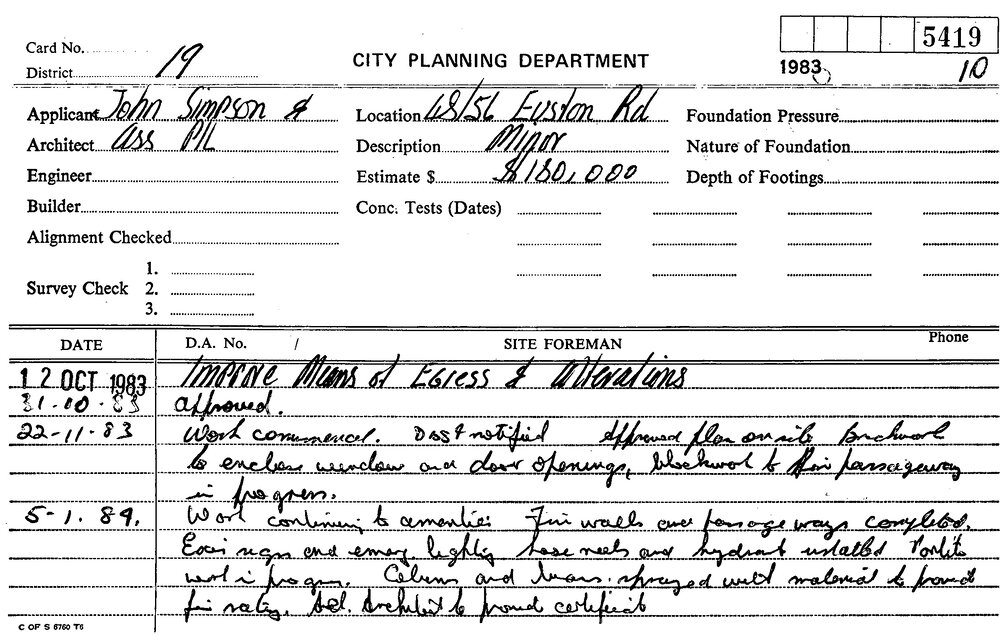 5419
Card No.
District 19
CITY PLANNING DEPARTMENT
1983 10
Applicant John Simpson &
Location 48/56 Euston Rd
Foundation Pressure
Architect Ass P/L
Description Minor
Nature of Foundation
Engineer
Estimate $ $180,000
Depth of Footings
Builder
Conc. Tests (Dates)
Alignment Checked
1.
Survey Check 2.
3.
DATE D.A. No. / SITE FOREMAN Phone
12 OCT 1983 Improve Means of Egress & Alterations
31.10.83 approved.
22-11-83 Work commenced. notified Approved plan on site Brickwork
to enclose window and door openings, blockwork to fire passageway
in progress.
5-1.84. Work continuing to amenities Fire walls and passage ways completed.
Exit signs and emerg. lighting hose reels and hydrant installed
work in progress. Columns and beams sprayed with material to provide
fire rating. Architect to provide certificate
C OF S 6760 T6